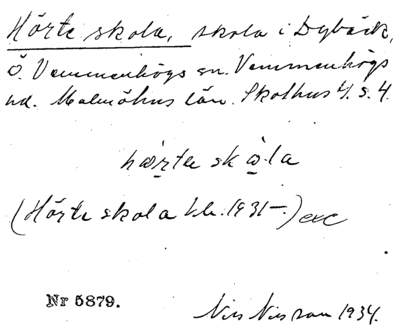 Hörte skola, skola i Dybäck,
Ö. Vemmenhögs sn. Vemmenhögs
hd. Malmöhus län. Skolhus 4. s. 4.
hœ̣rte skọ̀.la
(Hörte skola kk. 1931–.) exc
Nr 5879.
Nils Nilsson 1934.